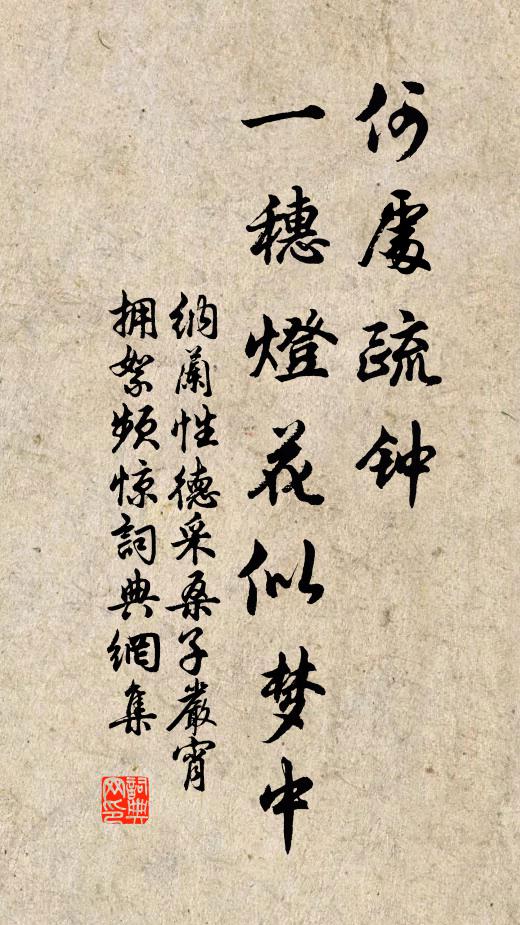 何處疏钟
一穗燈花似梦中
纳蘭性德采桑子嚴宵
拥絮频惊詞典網集
詞典
网印